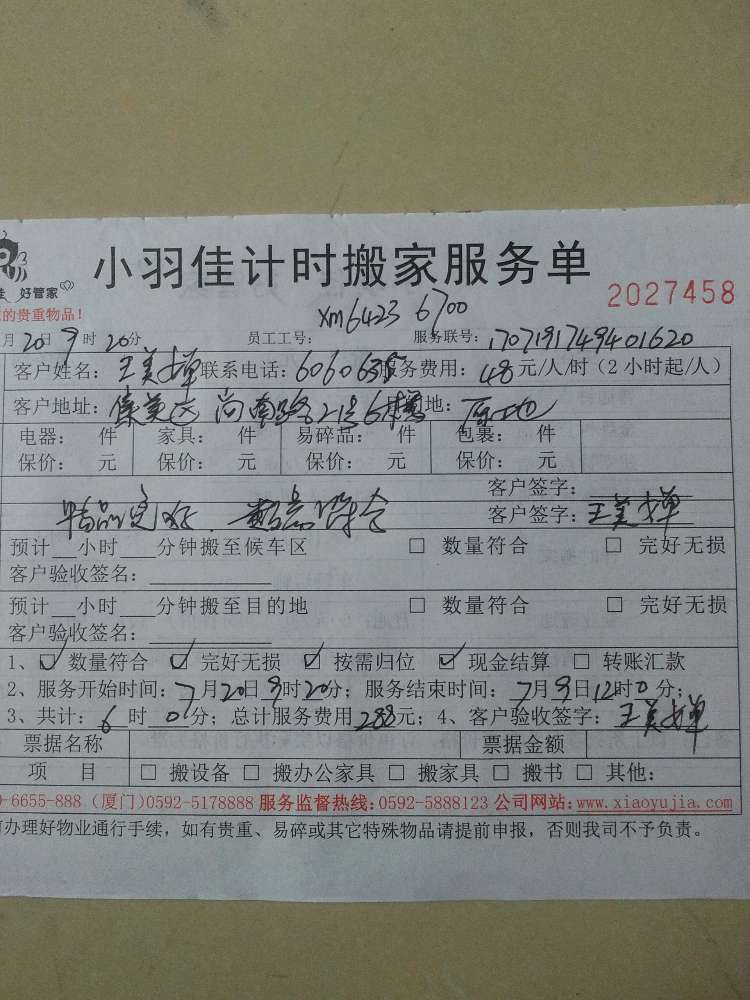 小羽佳计时搬家服务单
好管家
2027458
的贵重物品!
xm6423 6700
月20日9时20分 员工工号: 服务联号: 1707191749401620
客户姓名:王美婵 联系电话:6060635 服务费用:48元/人/时(2小时起/人)
客户地址:集美区尚南路21号6楼 地:原地
电器: 件 家具: 件 易碎品: 件 包裹: 件
保价: 元 保价: 元 保价: 元 保价: 元
客户签字:
物品完好.数量符合 客户签字:王美婵
预计__小时___分钟搬至候车区 □ 数量符合 □ 完好无损
客户验收签名:
预计__小时___分钟搬至目的地 □ 数量符合 □ 完好无损
客户验收签名:
1、☑ 数量符合 ☑ 完好无损 ☑ 按需归位 ☑ 现金结算 □ 转账汇款
2、服务开始时间:7月20日9时20分;服务结束时间:7月9日12时0分;
3、共计:6时0分;总计服务费用288元;4、客户验收签字:王美婵
票据名称 票据金额
项 目 □ 搬设备 □ 搬办公家具 □ 搬家具 □ 搬书 □ 其他:
-6655-888 (厦门)0592-5178888 服务监督热线:0592-5888123 公司网站:www.xiaoyujia.com
办理好物业通行手续,如有贵重、易碎或其它特殊物品请提前申报,否则我司不予负责。